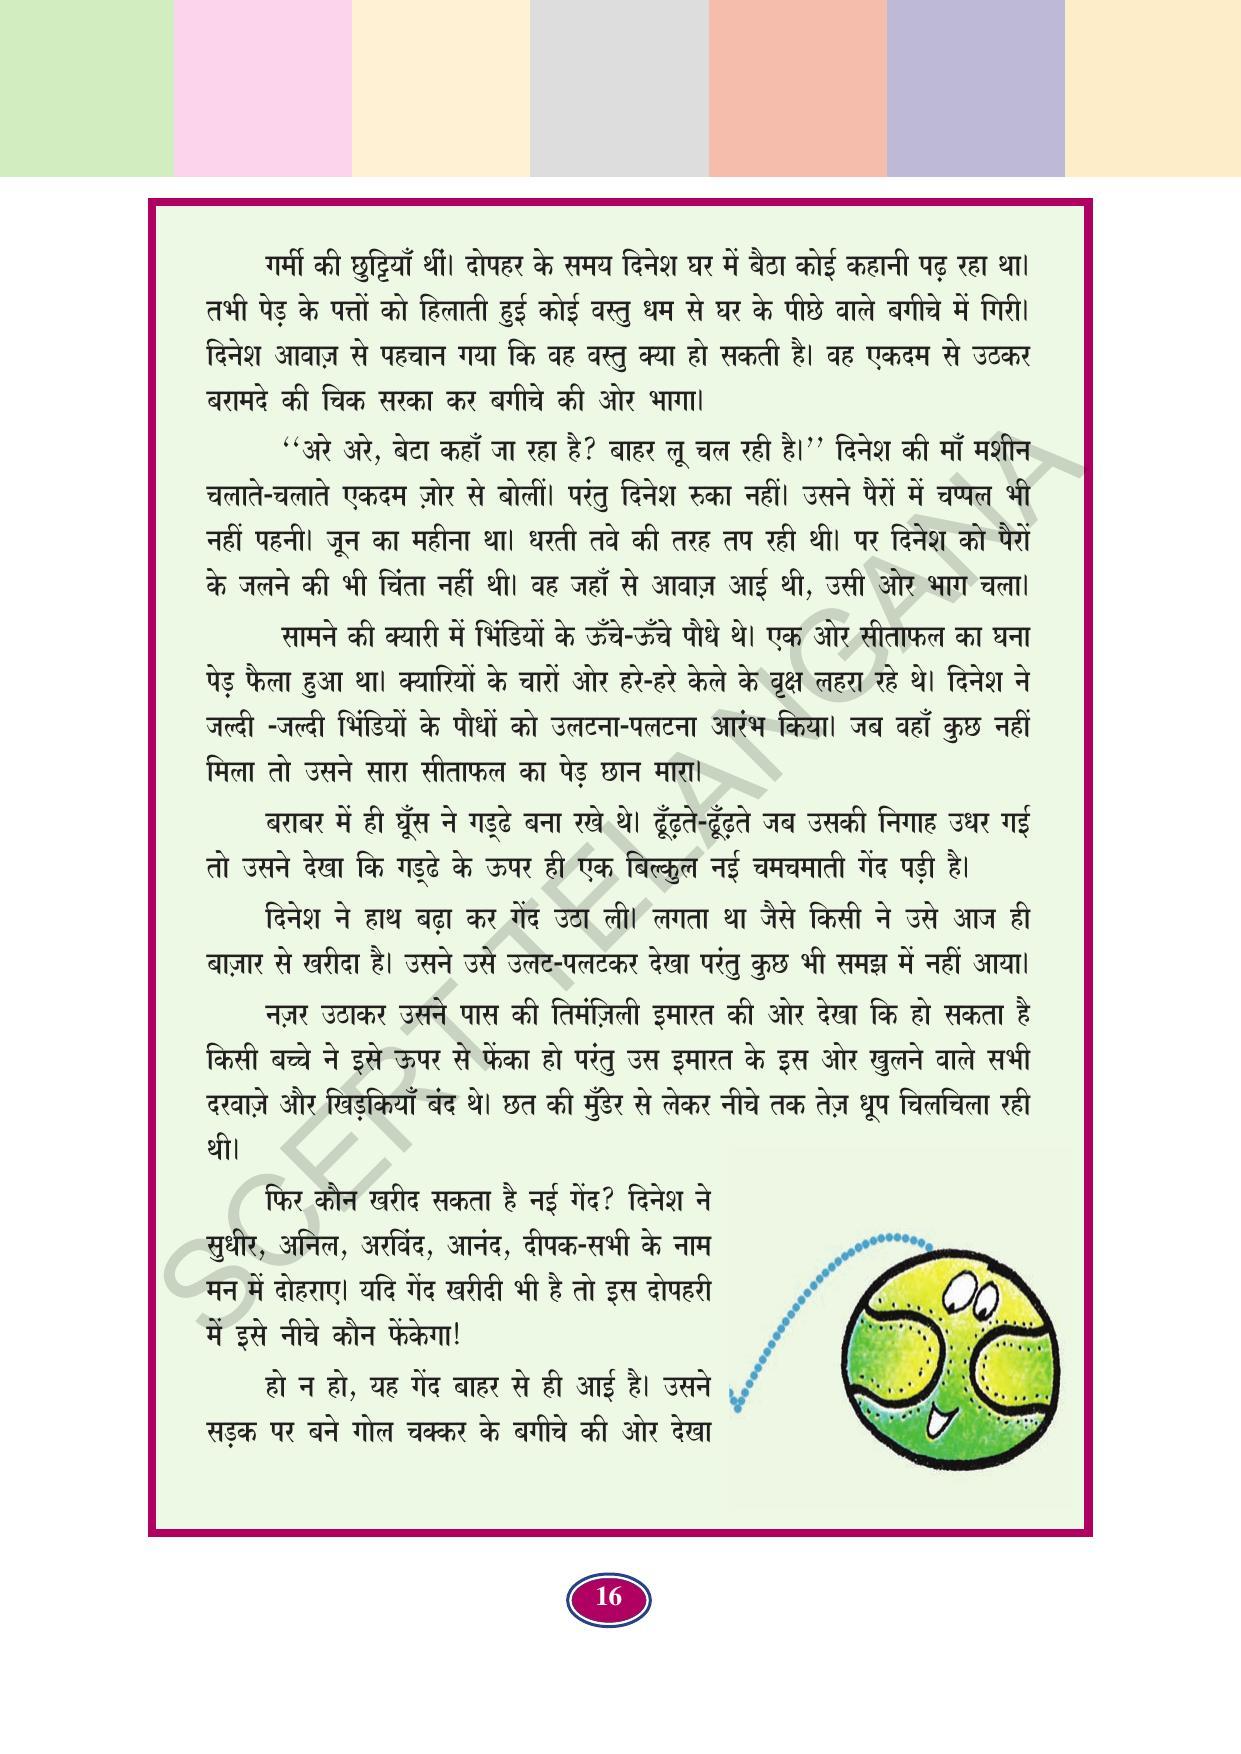 गर्मी की छुट्टियाँ थीं। दोपहर के समय दिनेश घर में बैठा कोई कहानी पढ़ रहा था।
तभी पेड़ के पत्तों को हिलाती हुई कोई वस्तु धम से घर के पीछे वाले बगीचे में गिरी।
दिनेश आवाज़ से पहचान गया कि वह वस्तु क्या हो सकती है। वह एकदम से उठकर
बरामदे की चिक सरका कर बगीचे की ओर भागा।
‘‘अरे अरे, बेटा कहाँ जा रहा है? बाहर लू चल रही है।’’ दिनेश की माँ मशीन
चलाते-चलाते एकदम ज़ोर से बोलीं। परंतु दिनेश रुका नहीं। उसने पैरों में चप्पल भी
नहीं पहनी। जून का महीना था। धरती तवे की तरह तप रही थी। पर दिनेश को पैरों
के जलने की भी चिंता नहीं थी। वह जहाँ से आवाज़ आई थी, उसी ओर भाग चला।
सामने की क्यारी में भिंडियों के ऊँचे-ऊँचे पौधे थे। एक ओर सीताफल का घना
पेड़ फैला हुआ था। क्यारियों के चारों ओर हरे-हरे केले के वृक्ष लहरा रहे थे। दिनेश ने
जल्दी -जल्दी भिंडियों के पौधों को उलटना-पलटना आरंभ किया। जब वहाँ कुछ नहीं
मिला तो उसने सारा सीताफल का पेड़ छान मारा।
बराबर में ही घूँस ने गड्ढे बना रखे थे। ढूँढ़ते-ढूँढ़ते जब उसकी निगाह उधर गई
तो उसने देखा कि गड्ढे के ऊपर ही एक बिल्कुल नई चमचमाती गेंद पड़ी है।
दिनेश ने हाथ बढ़ा कर गेंद उठा ली। लगता था जैसे किसी ने उसे आज ही
बाज़ार से खरीदा है। उसने उसे उलट-पलटकर देखा परंतु कुछ भी समझ में नहीं आया।
नज़र उठाकर उसने पास की तिमंज़िली इमारत की ओर देखा कि हो सकता है
किसी बच्चे ने इसे ऊपर से फेंका हो परंतु उस इमारत के इस ओर खुलने वाले सभी
दरवाज़े और खिड़कियाँ बंद थे। छत की मुँडेर से लेकर नीचे तक तेज़ धूप चिलचिला रही
थी।
फिर कौन खरीद सकता है नई गेंद? दिनेश ने
सुधीर, अनिल, अरविंद, आनंद, दीपक-सभी के नाम
मन में दोहराए। यदि गेंद खरीदी भी है तो इस दोपहरी
में इसे नीचे कौन फेंकेगा!
हो न हो, यह गेंद बाहर से ही आई है। उसने
सड़क पर बने गोल चक्कर के बगीचे की ओर देखा
16
SCERT TELANGANA